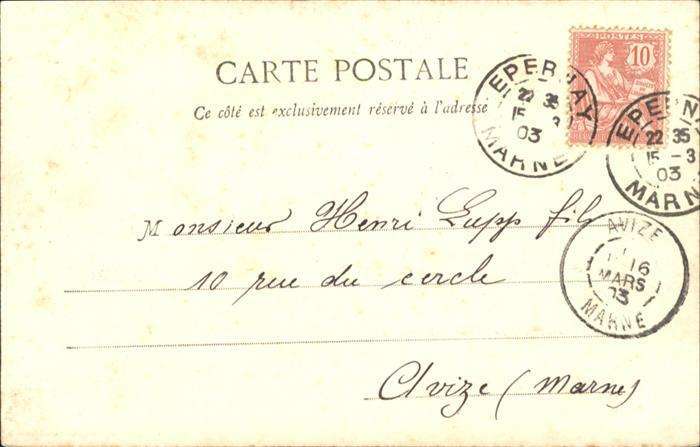 POSTES
10
CARTE POSTALE
Ce côté est exclusivement réservé à l'adresse
EPERNAY
22 35
15 - 3
03
MARNE
EPERN
22 35
15 - 3
03
MARN
Monsieur Henri Lupp fils
10 rue du cercle
AVIZE
16
MARS
03
MARNE
Avize (Marne)